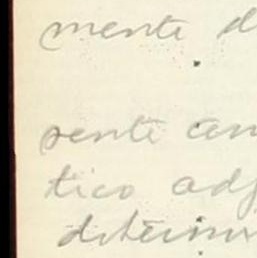 mente d
sente con
tico adj
determin